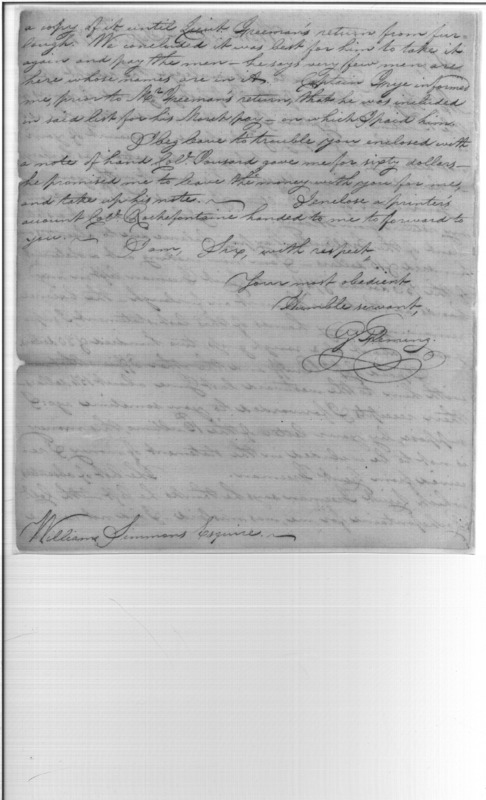 a copy of it until Lieut Freeman's return from fur-
lough. We concluded it was best for him to take it
again and pay the men – he says very few men are
here whose names are in it. Captain Frye informed
me, prior to Mr. Freeman's return, that he was included
in said list for his March pay – on which I paid him
I beg leave to trouble you enclosed with
a note of hand Colo. gave me for sixty dollars –
he promised me to leave the money with you for me,
and take up his note. I enclose a printer's
account Colo. Rochefontaine handed to me to forward to
you.
I am, Sir, with respect,
Your most obedient
Humble servant,
G Fleming.
William Simmons Esquire